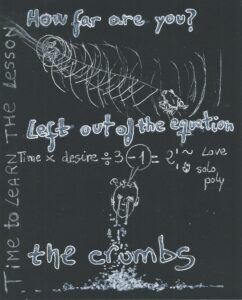 How far are you?
Left out of the equation
Time × desire ÷ 3 - 1 = 2 ~ Love
solo
poly
the crumbs
Time to LEARN THE LESSON